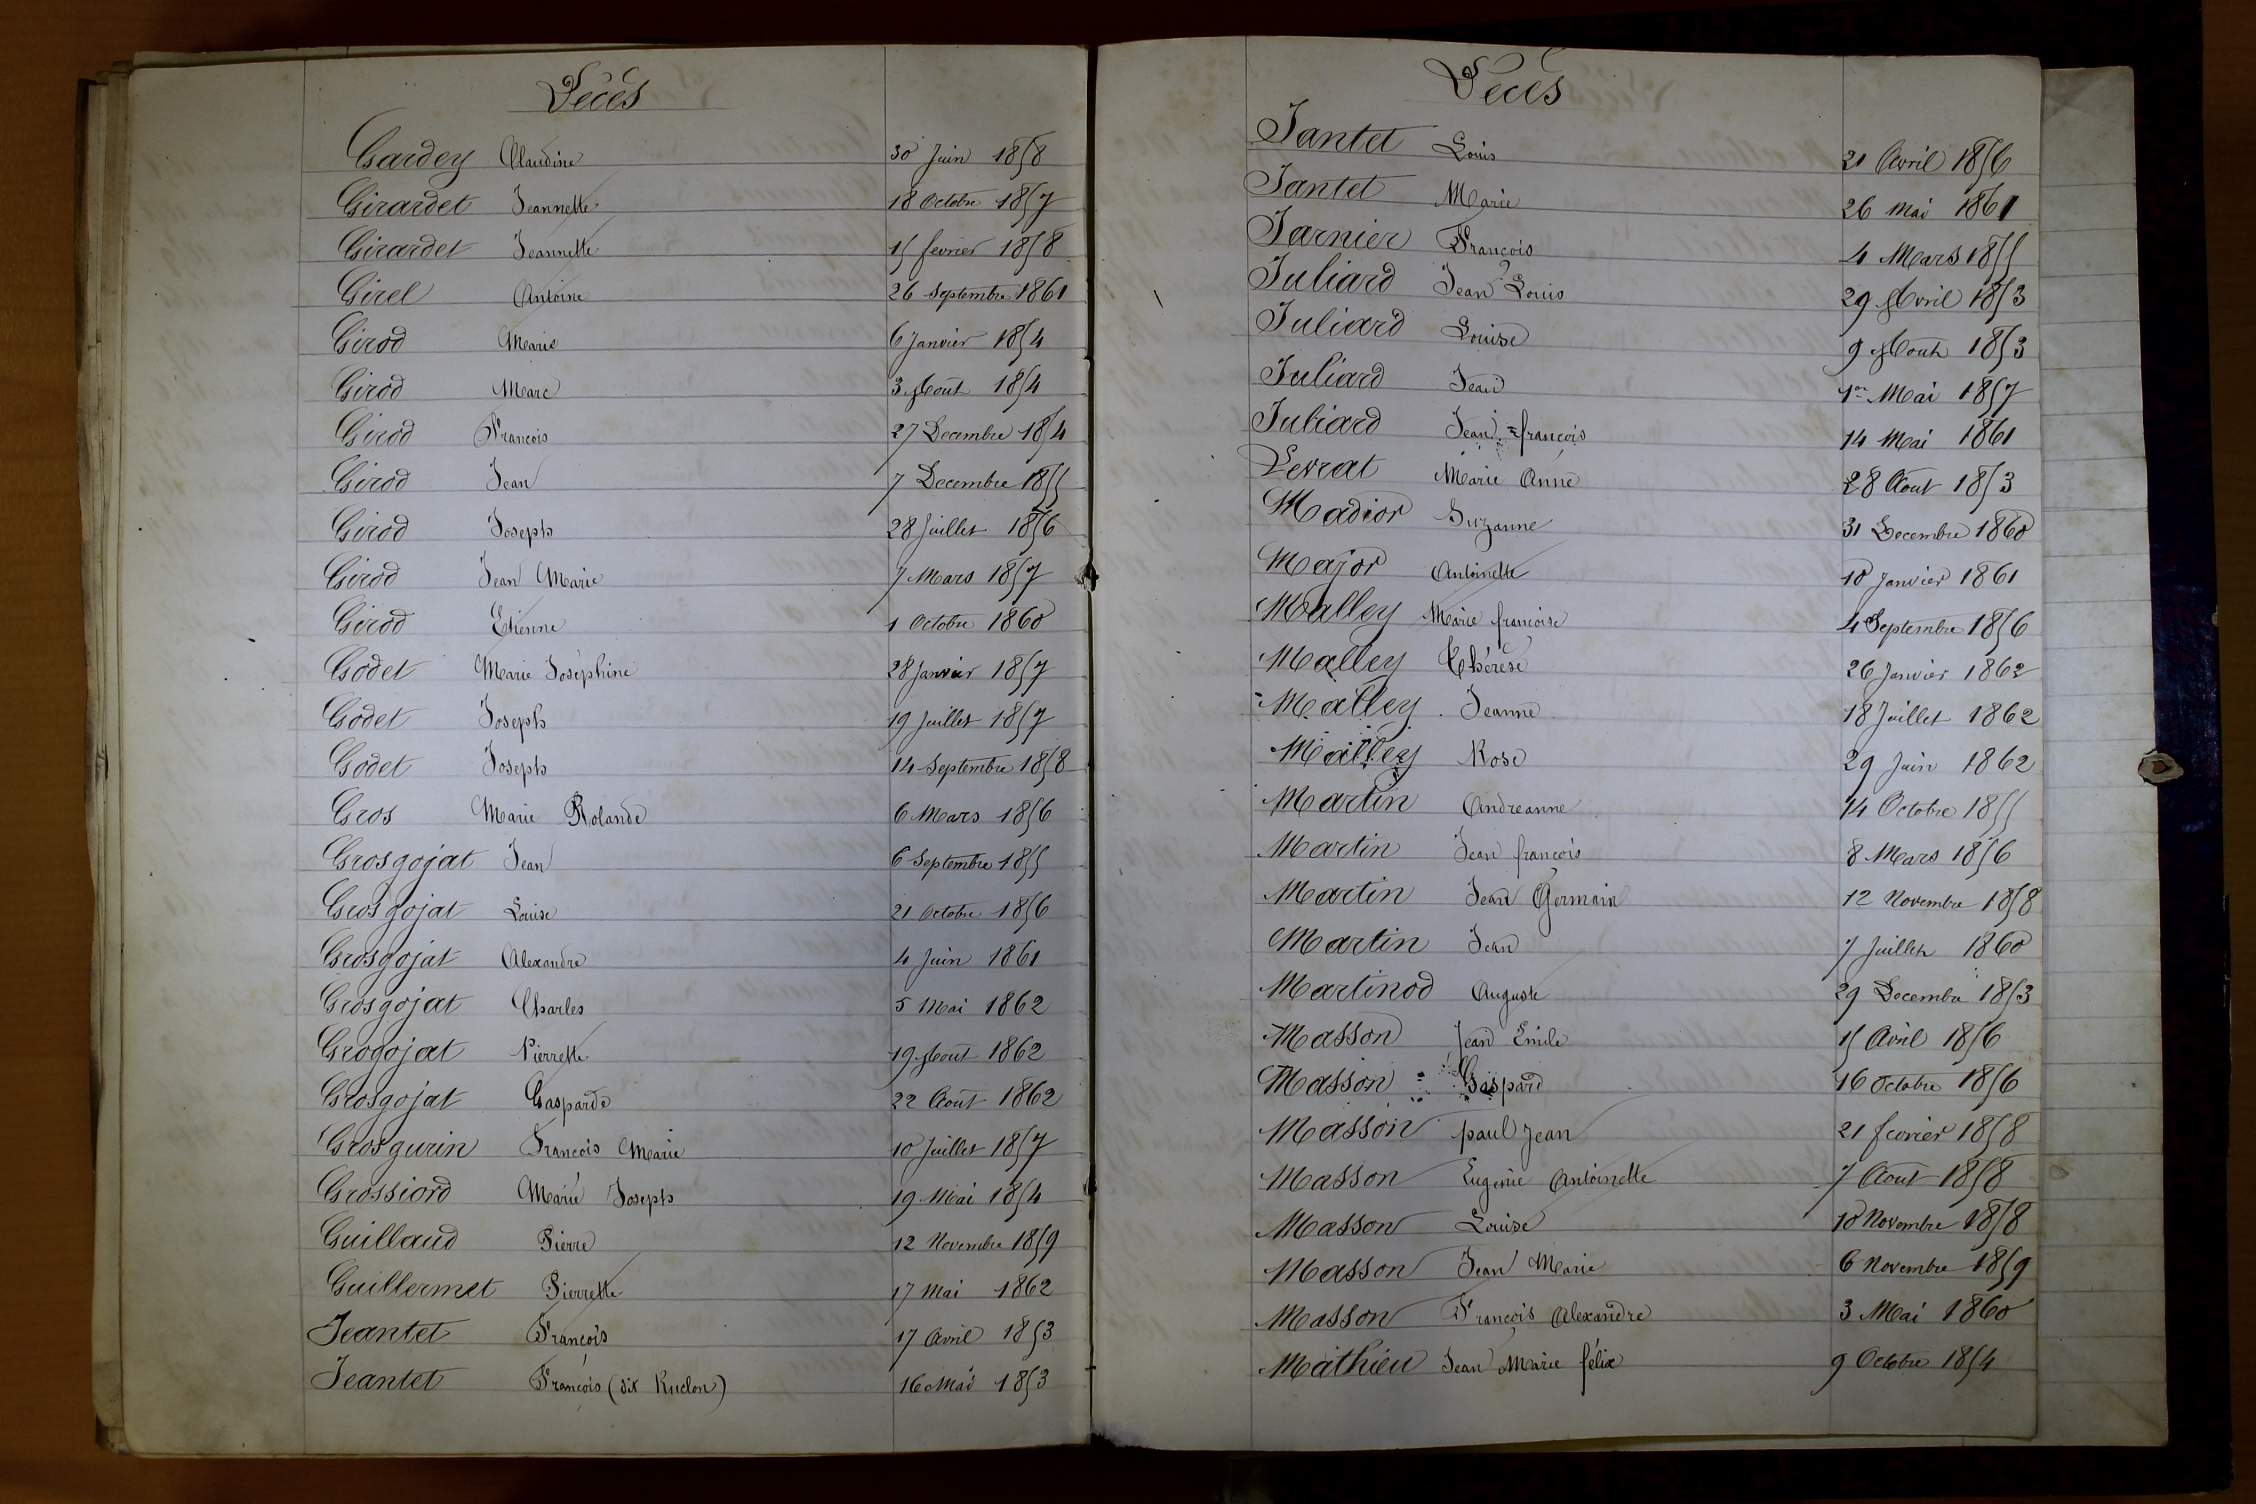 Décès
Gardey Claudine 30 Juin 1858
Girardet Jeannette 18 Octobre 1857
Girardet Jeannette 15 fevrier 1858
Girel Antoine 26 Septembre 1861
Girod Marie 6 Janvier 1854
Girod Marc 3 Août 1854
Girod François 27 Decembre 1854
Girod Jean 7 Decembre 1855
Girod Joseph 28 Juillet 1856
Girod Jean Marie 7 Mars 1857
Girod Etienne 1 Octobre 1860
Godet Marie Joséphine 28 Janvier 1857
Godet Joseph 19 Juillet 1857
Godet Joseph 14 Septembre 1858
Gros Marie Rolande 6 Mars 1856
Grosgojat Jean 6 Septembre 1855
Grosgojat Louise 21 Octobre 1856
Grosgojat Alexandre 4 Juin 1861
Grosgojat Charles 5 Mai 1862
Grogojat Pierrette 19 Août 1862
Grosgojat Gasparde 22 Août 1862
Grosgurin François Marie 10 Juillet 1857
Grossiord Marie Joseph 19 Mai 1854
Guillaud Pierre 12 Novembre 1859
Guillermet Pierrette 17 Mai 1862
Jeantet François 17 Avril 1853
Jeantet François (dit Ruclon) 16 Mai 1853
Décès
Jantet Louis 21 Avril 1856
Jantet Marie 26 Mai 1861
Jarnier François 4 Mars 1855
Juliard Jean Louis 29 Avril 1853
Juliard Louise 9 Août 1853
Juliard Jean 1er Mai 1857
Juliard Jean=françois 14 Mai 1861
Levrat Marie Anne 28 Août 1853
Madior Suzanne 31 Decembre 1860
Major Antoinette 10 Janvier 1861
Malley Marie françoise 4 Septembre 1856
Malley Thérèse 26 Janvier 1862
Malley Jeanne 18 Juillet 1862
Malley Rose 29 Juin 1862
Martin Andreanne 14 Octobre 1855
Martin Jean françois 8 Mars 1856
Martin Jean Germain 12 Novembre 1858
Martin Jean 7 Juillet 1860
Martinod Auguste 29 Decembre 1853
Masson Jean Emile 15 Avril 1856
Masson Gaspard 16 Octobre 1856
Masson paul Jean 21 fevrier 1858
Masson Eugénie Antoinette 7 Aout 1858
Masson Louise 10 Novembre 1858
Masson Jean Marie 6 Novembre 1859
Masson François Alexandre 3 Mai 1860
Mathieu Jean Marie félix 9 Octobre 1854